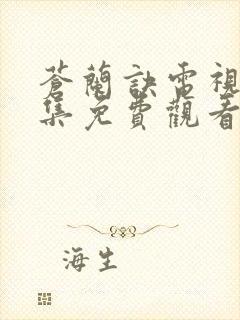 蒼蘭訣電視
集免費觀看
海生